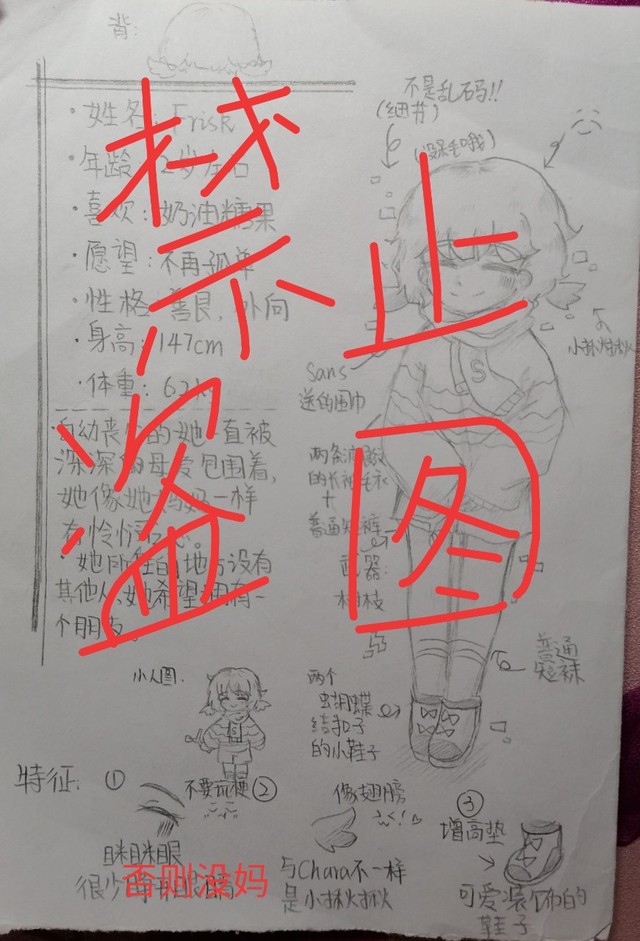 背:
不是乱码!!
(细节)
(没呆毛哦)
·姓名:FrisR
·年龄: 2岁左右
·喜欢:奶油糖果
·愿望:不再孤单
·性格:善良,外向
·身高:147cm
·体重:
小揪揪
Sans
送的围巾
自幼丧 的她一直被
深深的母爱包围着,
她像她妈妈一样
有怜悯之心。
·她所在的地方没有
其他人,她希望拥有一
个朋友。
两条波浪纹
的长袖毛衣
+
普通短裤
武器:
树枝
普通
短袜
两个
蝴蝶
结扣子
的小鞋子
小人图:
不要玩梗
特征: ①
眯眯眼
很少
②
像翅膀
与Chara不一样
是小揪揪
③
增高垫
可爱装饰的
鞋子
禁止
盗图
否则没妈